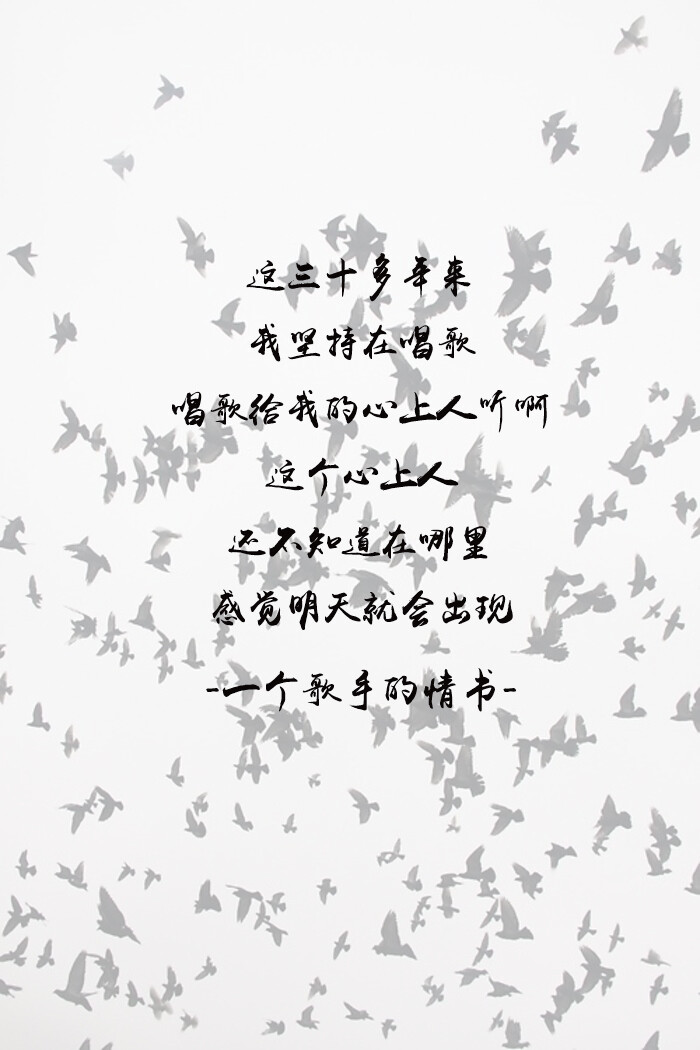 这三十多年来
我坚持在唱歌
唱歌给我的心上人听啊
这个心上人
还不知道在哪里
感觉明天就会出现
-一个歌手的情书-